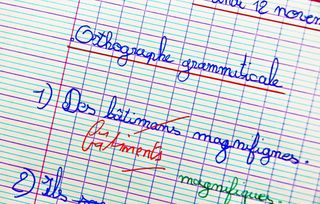 12 novem
Orthographe grammaticale
1) Des bâtimans magnifignes.
bâtiments
magnifiques.
2) Ils